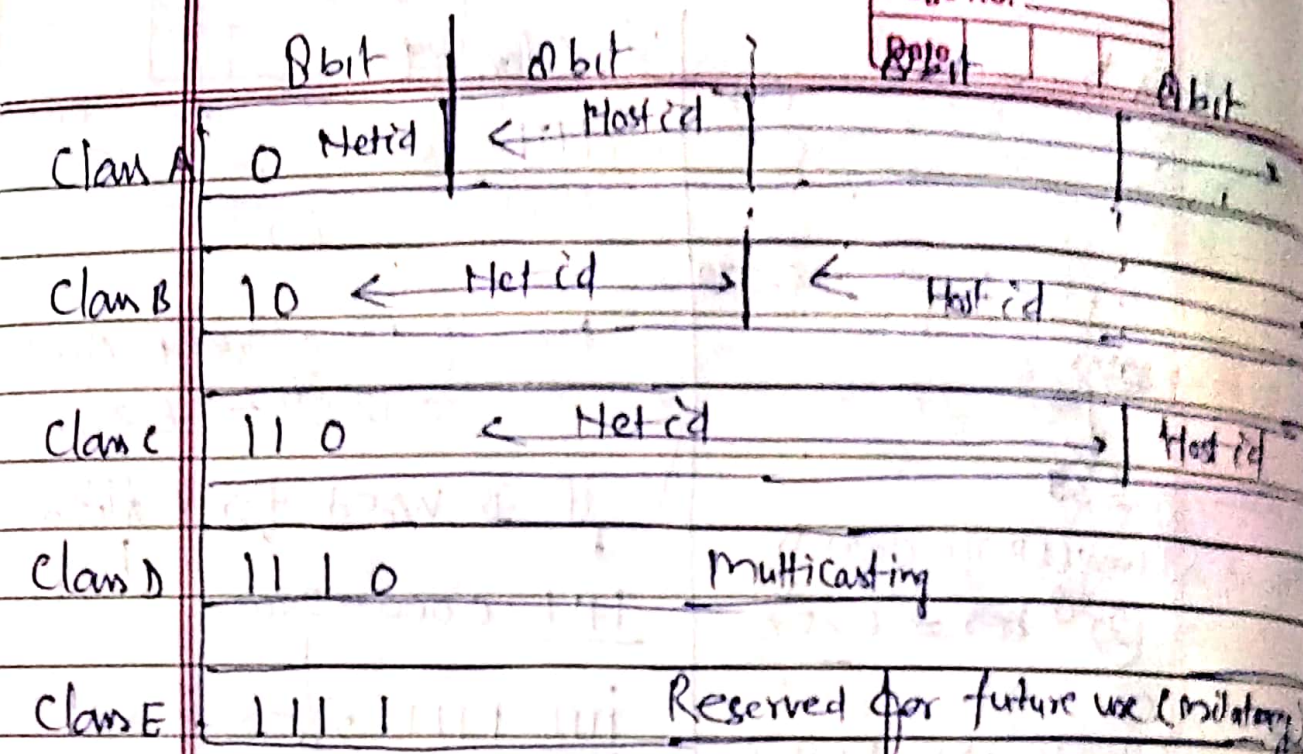 8bit 8bit 8bit 8bit
Class A 0 Netid Host id
Class B 10 Net id Host id
Class C 110 Net id Host id
Class D 1110 Multicasting
Class E 1111 Reserved for future use